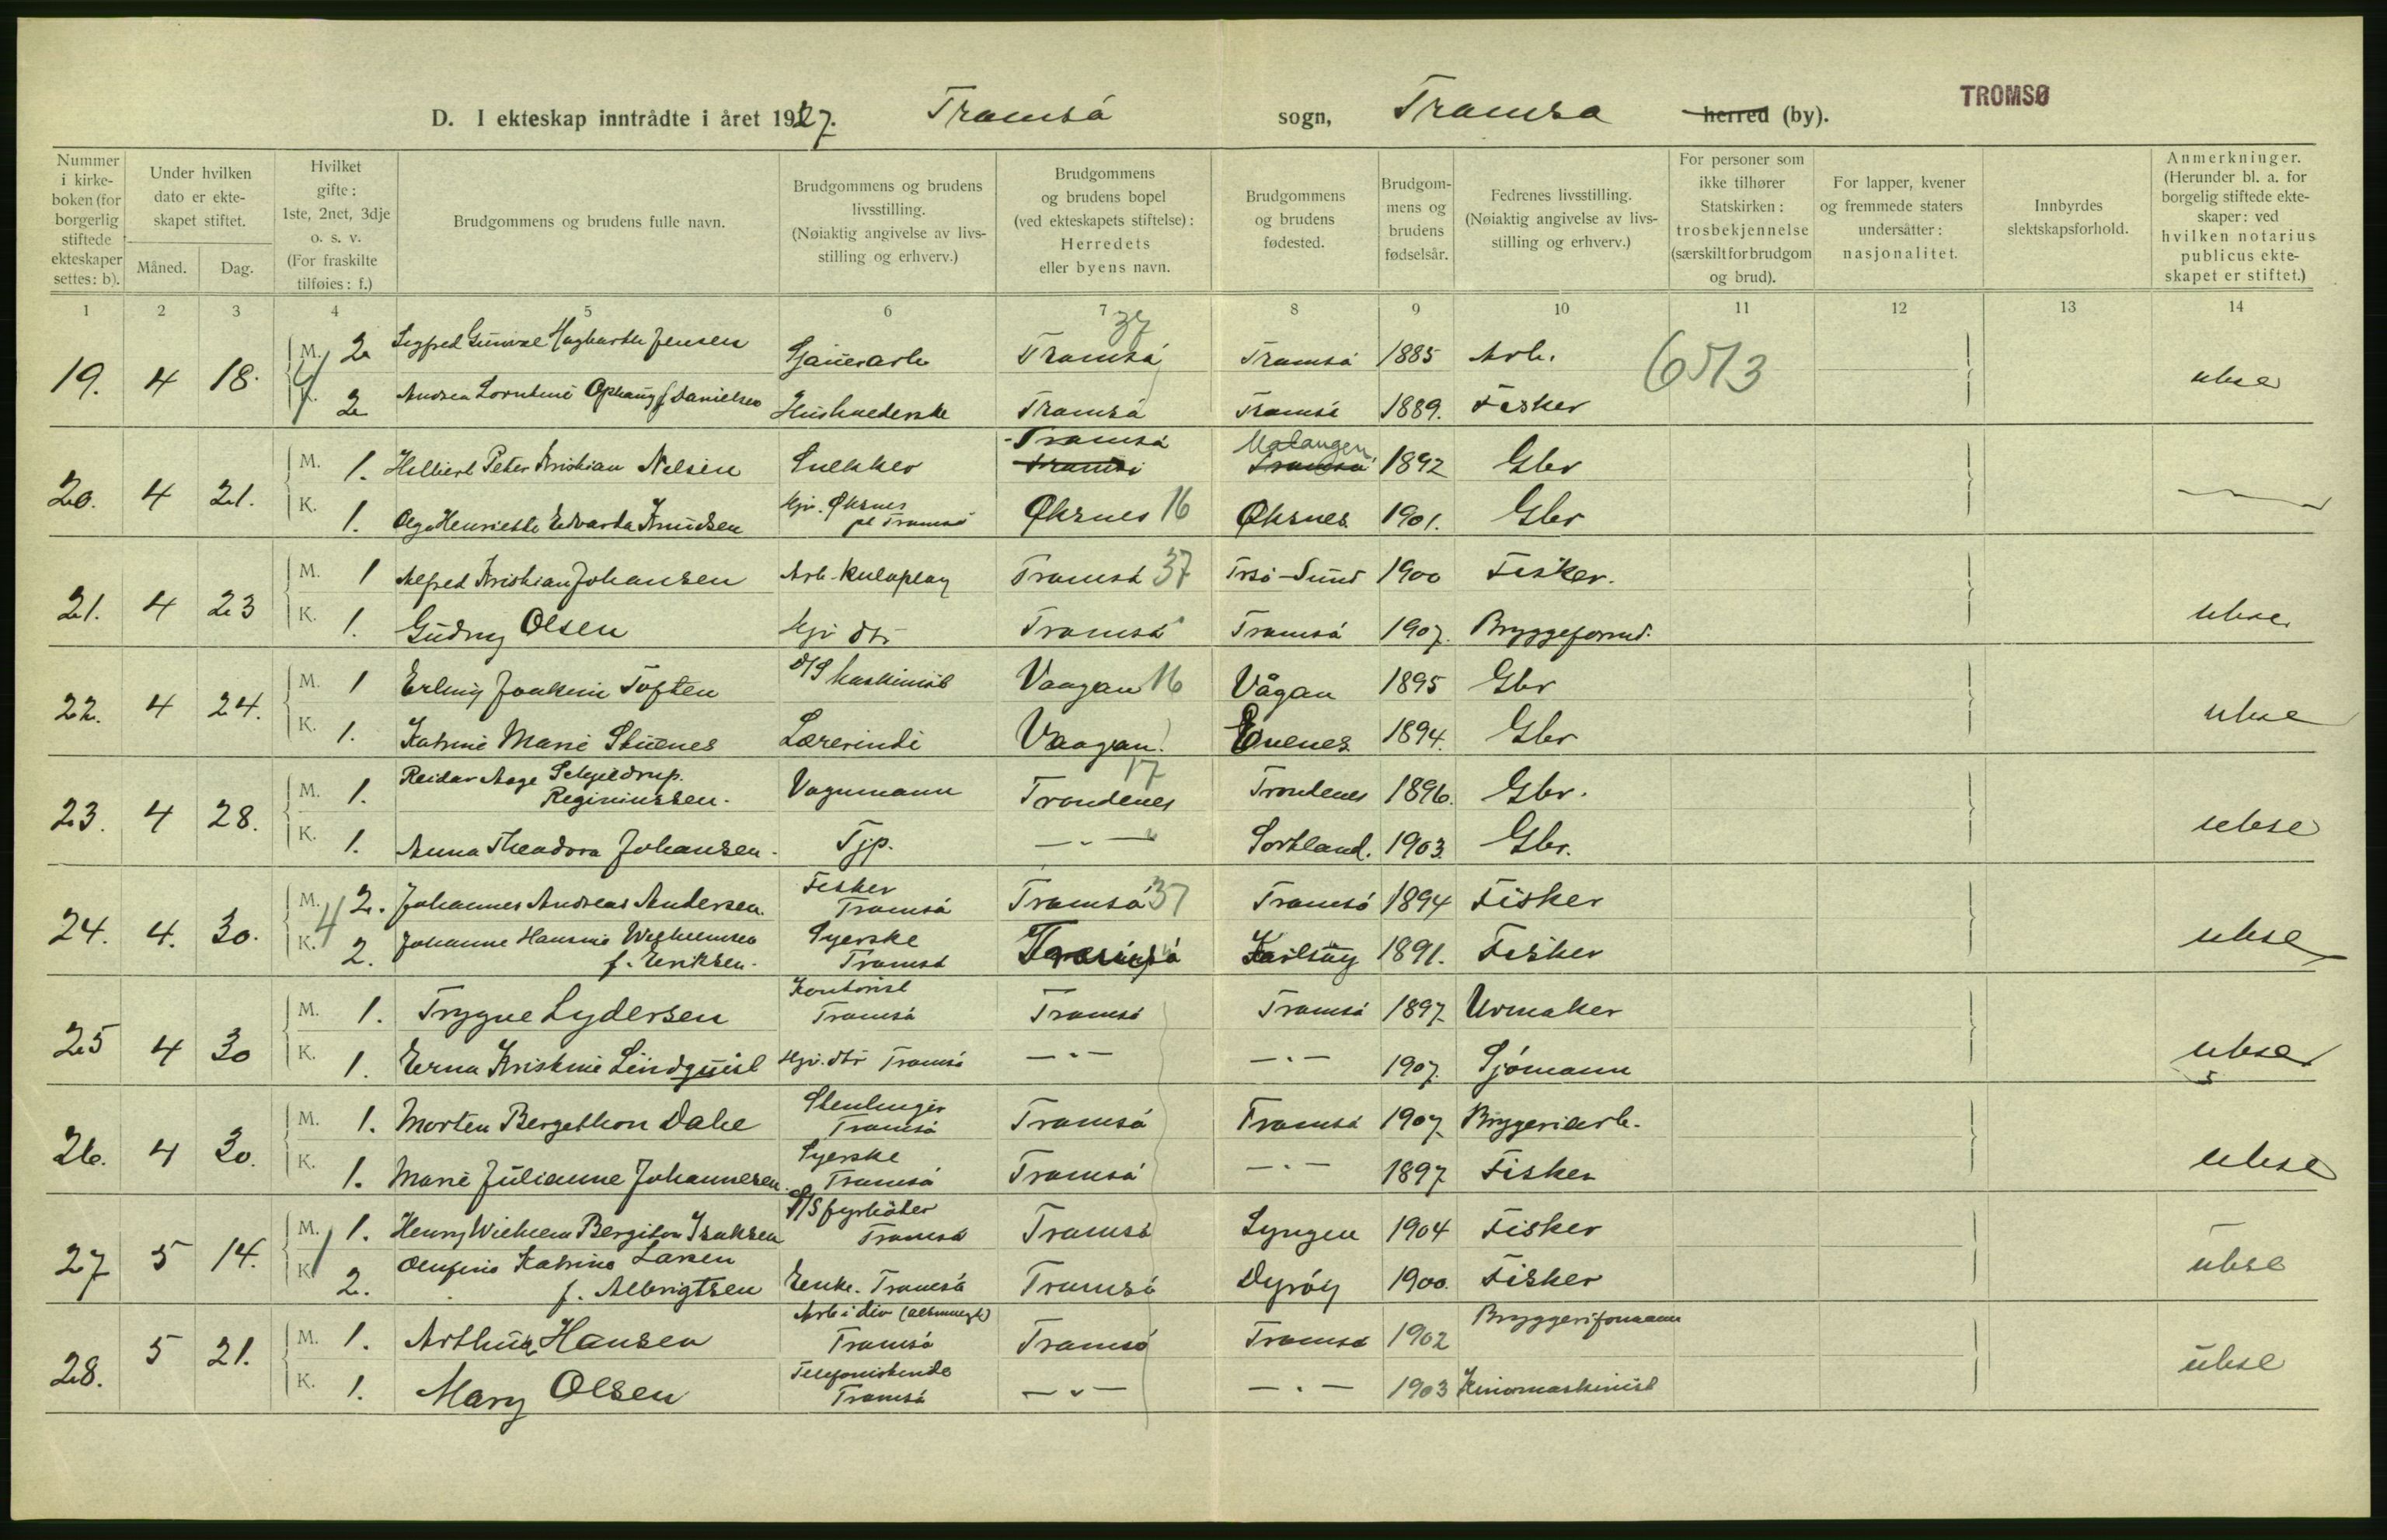 TROMSØ
D. I ekteskap inntrådte i året 1927. Tromsø sogn, Tromsø herred (by).
Nummer i kirke-boken (for borgerlig stiftede ekteskaper settes: b).
Under hvilken dato er ekte-skapet stiftet.
Måned. Dag.
Hvilket gifte: 1ste, 2net, 3dje o. s. v. (For fraskilte tilføies: f.)
Brudgommens og brudens fulle navn.
Brudgommens og brudens livsstilling. (Nøiaktig angivelse av livs-stilling og erhverv.)
Brudgommens og brudens bopel (ved ekteskapets stiftelse): Herredets eller byens navn.
Brudgommens og brudens fødested.
Brudgom-mens og brudens fødselsår.
Fedrenes livsstilling. (Nøiaktig angivelse av livs-stilling og erhverv.)
For personer som ikke tilhører Statskirken: trosbekjennelse (særskilt for brudgom og brud).
For lapper, kvener og fremmede staters undersåtter: nasjonalitet.
Innbyrdes slektskapsforhold.
Anmerkninger. (Herunder bl. a. for borgelig stiftede ekte-skaper: ved hvilken notarius publicus ekte-skapet er stiftet.)
1 2 3 4 5 6 7 8 9 10 11 12 13 14
37
19. 4 18. M. 2 Jensen Tromsø Tromsø 1885 Arb. 6513
K. 2 Andrea f. Danielsen Husholderske Tromsø Tromsø 1889. Fisker ukse
20. 4 21. M. 1. Hilbert Peter Kristian Nilsen Snekker Tromsø Tromsø Malangen Tromsø 1892 Gbr
K. 1. Olga Henriette Edvarda Knudsen Hjv. Øksnes pt Tromsø Øksnes 16 Øksnes 1901. Gbr
21. 4 23 M. 1 Alfred Kristian Johansen Arb. Tromsø 37 Trsø-Sund 1900 Fisker.
K. 1. Gudny Olsen Hjv dtr Tromsø Tromsø 1907. Bryggeformd. ukse
22. 4 24. M. 1 Erling Joakim Toften D/S maskinist Vaagan 16 Vågan 1895 Gbr
K. 1. Katrine Marie Stuenes Lærerinde Vaagan Evenes 1894. Gbr ukse
23. 4 28. M. 1. Reidar Aage Schjeldrup Reginiussen. Vognmann Trondenes 17 Trondenes 1896. Gbr.
K. 1. Anna Theodora Johansen. Tjp. — " — Sortland. 1903. Gbr. ukse
24. 4. 30. M. 2. Johannes Andreas Andersen. Fisker Tromsø Tromsø 37 Tromsø 1894 Fisker
K. 2. Johanne Hansine Wilhelmsen f. Eriksen. Syerske Tromsø Tromsø Karlsøy 1891. Fisker ukse
25 4 30 M. 1. Trygve Lydersen Kontorist Tromsø Tromsø Tromsø 1897 Urmaker
K. 1. Erna Kristine Lindquist Hjv. dtr Tromsø — " — — " — 1907. Sjømann ukse
26. 4 30. M. 1. Morten Bergethon Dahl Stenhugger Tromsø Tromsø Tromsø 1907 Bryggeriarb.
K. 1. Marie Julianne Johannesen. Syerske Tromsø Tromsø — " — 1897 Fisker ukse
27 5 14. M. 1. Henry Wilhelm Bergiton Isaksen D/S fyrbøter Tromsø Tromsø Lyngen 1904 Fisker
K. 2. Olufine Katrine Larsen f. Albrigtsen Enke. Tromsø Tromsø Dyrøy 1900. Fisker ukse
28. 5 21. M. 1. Arthur Hansen Arb i div Tromsø Tromsø Tromsø 1902 Bryggeriformann
K. 1. Mary Olsen Telefonistinde Tromsø — " — — " — 1903 Kinomaskinist ukse